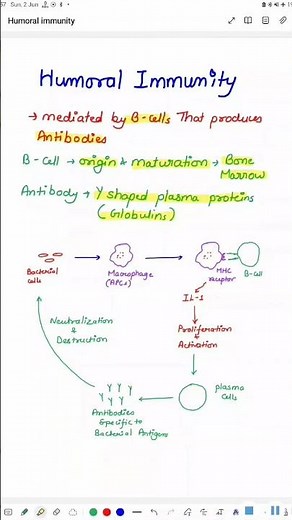 57 Sun, 2 Jun
Humoral immunity
Humoral Immunity
→ mediated by B-cells That produces
Antibodies
B-Cell → origin & maturation → Bone
Marrow
Antibody → Y shaped plasma proteins
(Globulins)
Bacterial
cells
Macrophage
(APCs)
MHC
receptor
B-Cell
IL-1
Neutralization
&
Destruction
Proliferation
&
Activation
plasma
cells
Antibodies
Specific to
Bacterial Antigens